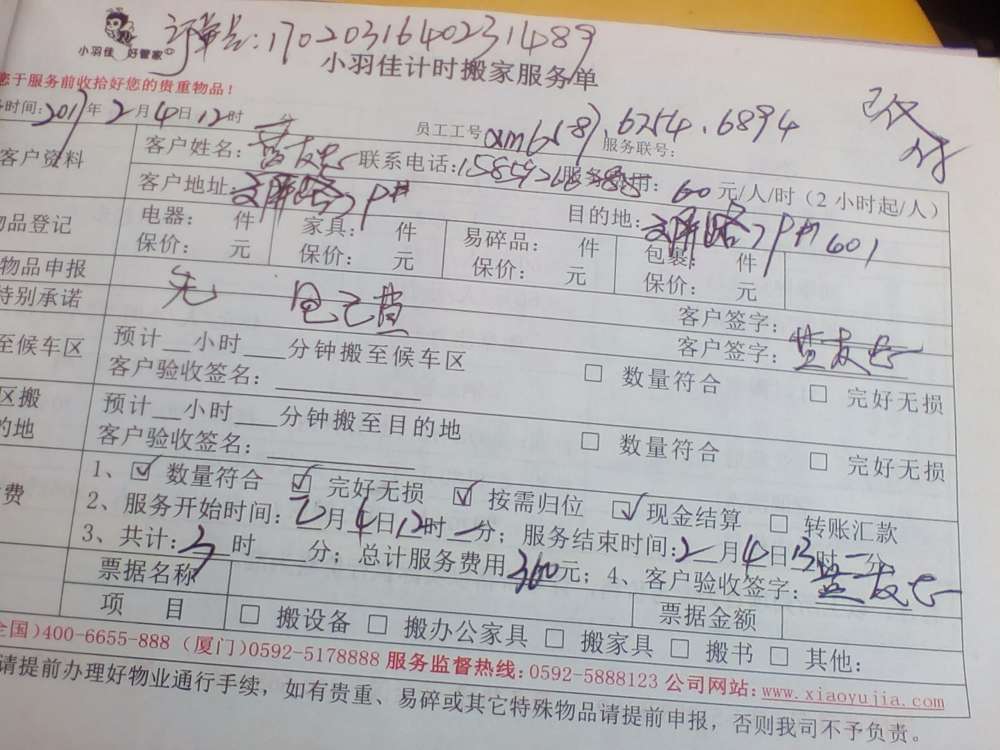 小羽佳 好管家
订单号:17020316402231489
小羽佳计时搬家服务单
您于服务前收拾好您的贵重物品!
务时间:2017年2月4日12时
员工工号xm6587、6254、6894
服务联号:
客户资料
客户姓名:
联系电话:
服务费用: 60元/人/时(2小时起/人)
客户地址:
目的地: 601
物品登记
电器: 件 家具: 件 易碎品: 件 包裹: 件
保价: 元 保价: 元 保价: 元 保价: 元
物品申报
无
客户签字:
特别承诺
客户签字:
至候车区
预计__小时___分钟搬至候车区
客户验收签名:
□ 数量符合 □ 完好无损
区搬
的地
预计__小时___分钟搬至目的地
客户验收签名:
□ 数量符合 □ 完好无损
费
1、☑ 数量符合 ☑ 完好无损 ☑ 按需归位 ☑ 现金结算 □ 转账汇款
2、服务开始时间:2月4日12时 分; 服务结束时间:2月4日13时 分
3、共计: 时 分; 总计服务费用360元; 4、客户验收签字:
票据名称 票据金额
项 目 □ 搬设备 □ 搬办公家具 □ 搬家具 □ 搬书 □ 其他:
全国)400-6655-888 (厦门)0592-5178888 服务监督热线:0592-5888123 公司网站:www.xiaoyujia.com
请提前办理好物业通行手续,如有贵重、易碎或其它特殊物品请提前申报,否则我司不予负责。